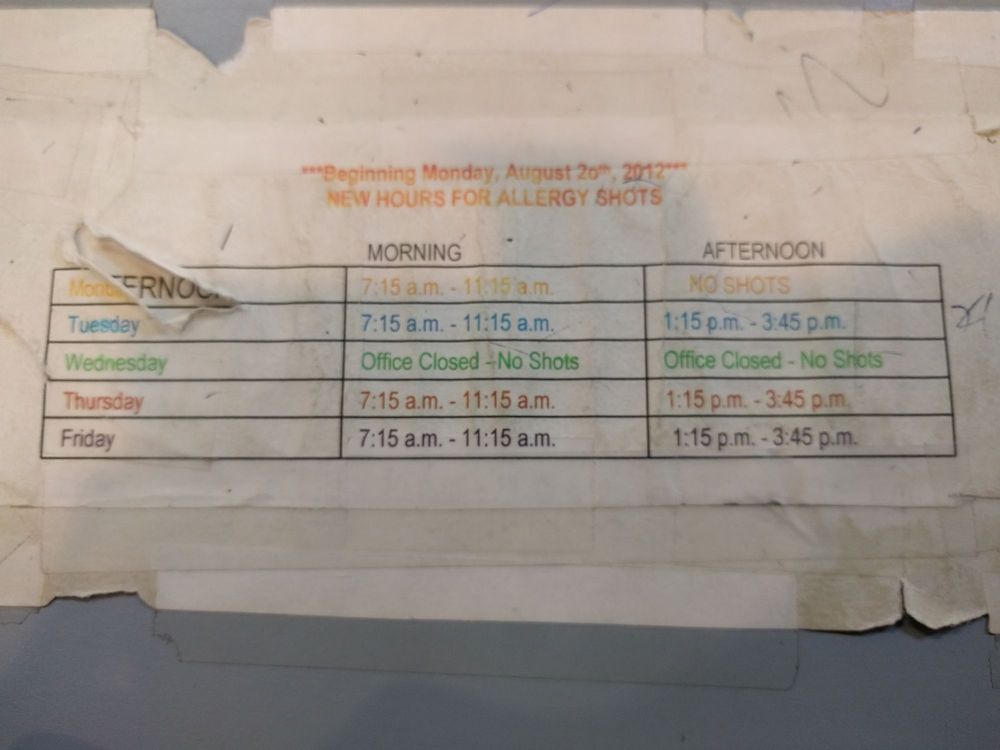 ***Beginning Monday, August 2oth, 2012***
NEW HOURS FOR ALLERGY SHOTS
MORNING AFTERNOON
Mon ERNOO 7:15 a.m. - 11:15 a.m. NO SHOTS
Tuesday 7:15 a.m. - 11:15 a.m. 1:15 p.m. - 3:45 p.m.
Wednesday Office Closed - No Shots Office Closed - No Shots
Thursday 7:15 a.m. - 11:15 a.m. 1:15 p.m. - 3:45 p.m.
Friday 7:15 a.m. - 11:15 a.m. 1:15 p.m. - 3:45 p.m.